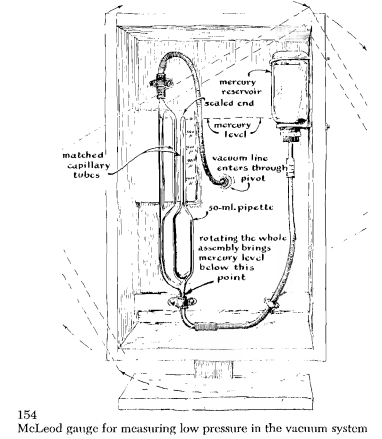 mercury
reservoir
sealed end
mercury
level
matched
capillary
tubes
vacuum line
enters through
pivot
50-ml. pipette
rotating the whole
assembly brings
mercury level
below this
point
154
McLeod gauge for measuring low pressure in the vacuum system